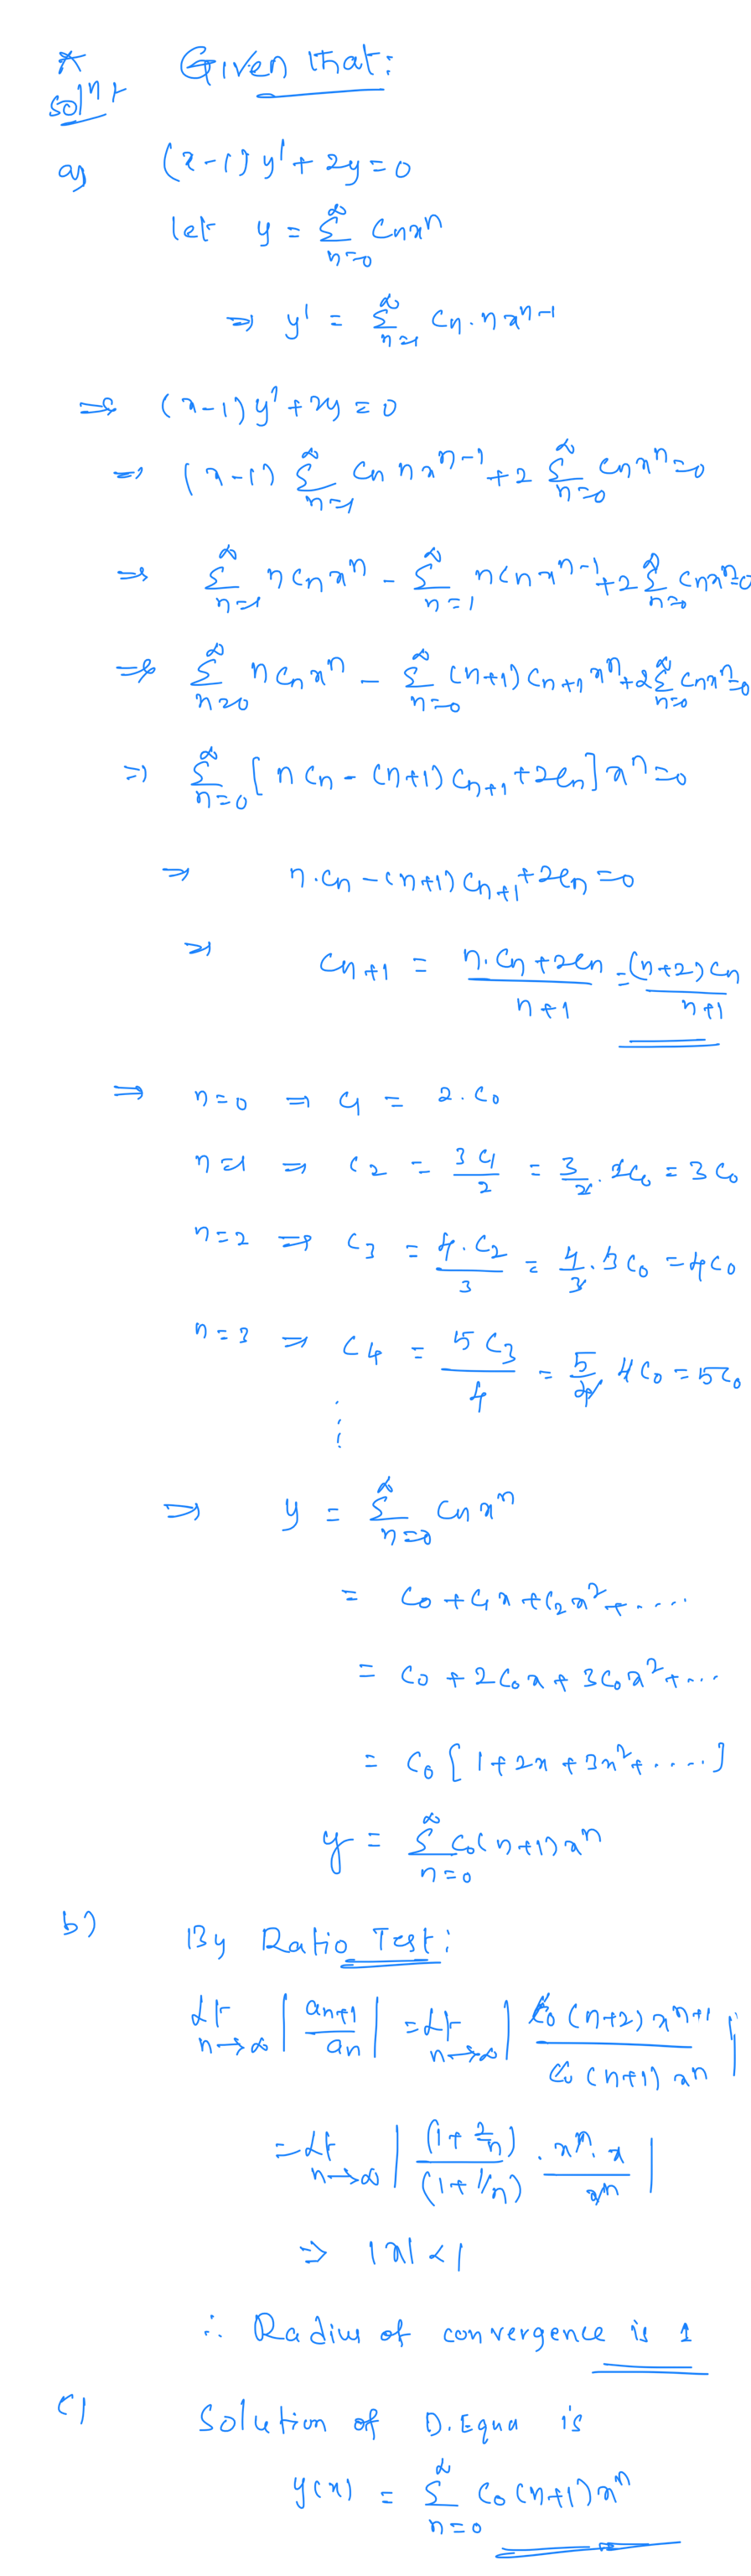 * Given that:
solⁿ:
a) (x-1)y' + 2y = 0
let y = ∑_{n=0}^{∞} cₙxⁿ
⇒ y' = ∑_{n=1}^{∞} cₙ.n xⁿ⁻¹
⇒ (x-1)y' + 2y = 0
⇒ (x-1) ∑_{n=1}^{∞} cₙ n xⁿ⁻¹ + 2 ∑_{n=0}^{∞} cₙxⁿ = 0
⇒ ∑_{n=1}^{∞} n cₙ xⁿ - ∑_{n=1}^{∞} n cₙ xⁿ⁻¹ + 2 ∑_{n=0}^{∞} cₙxⁿ = 0
⇒ ∑_{n=0}^{∞} n cₙ xⁿ - ∑_{n=0}^{∞} (n+1) cₙ₊₁ xⁿ + 2 ∑_{n=0}^{∞} cₙxⁿ = 0
⇒ ∑_{n=0}^{∞} [n cₙ - (n+1) cₙ₊₁ + 2cₙ] xⁿ = 0
⇒ n.cₙ - (n+1) cₙ₊₁ + 2cₙ = 0
⇒ cₙ₊₁ = (n.cₙ + 2cₙ)/(n+1) = (n+2)cₙ/(n+1)
⇒ n=0 ⇒ c₁ = 2.c₀
n=1 ⇒ c₂ = 3c₁/2 = 3/2 . 2c₀ = 3c₀
n=2 ⇒ c₃ = 4.c₂/3 = 4/3 . 3c₀ = 4c₀
n=3 ⇒ c₄ = 5c₃/4 = 5/4 . 4c₀ = 5c₀
⋮
⇒ y = ∑_{n=0}^{∞} cₙxⁿ
= c₀ + c₁x + c₂x² + ....
= c₀ + 2c₀x + 3c₀x² + ...
= c₀ [1 + 2x + 3x² + ....]
y = ∑_{n=0}^{∞} c₀(n+1)xⁿ
b) By Ratio Test:
Lt_{n→∞} |aₙ₊₁/aₙ| = Lt_{n→∞} |c₀(n+2)xⁿ⁺¹ / c₀(n+1)xⁿ|
= Lt_{n→∞} |(1+2/n)/(1+1/n) . xⁿ.x/xⁿ|
⇒ |x| < 1
∴ Radius of convergence is 1
c) Solution of D.Equa is
y(x) = ∑_{n=0}^{∞} c₀(n+1)xⁿ